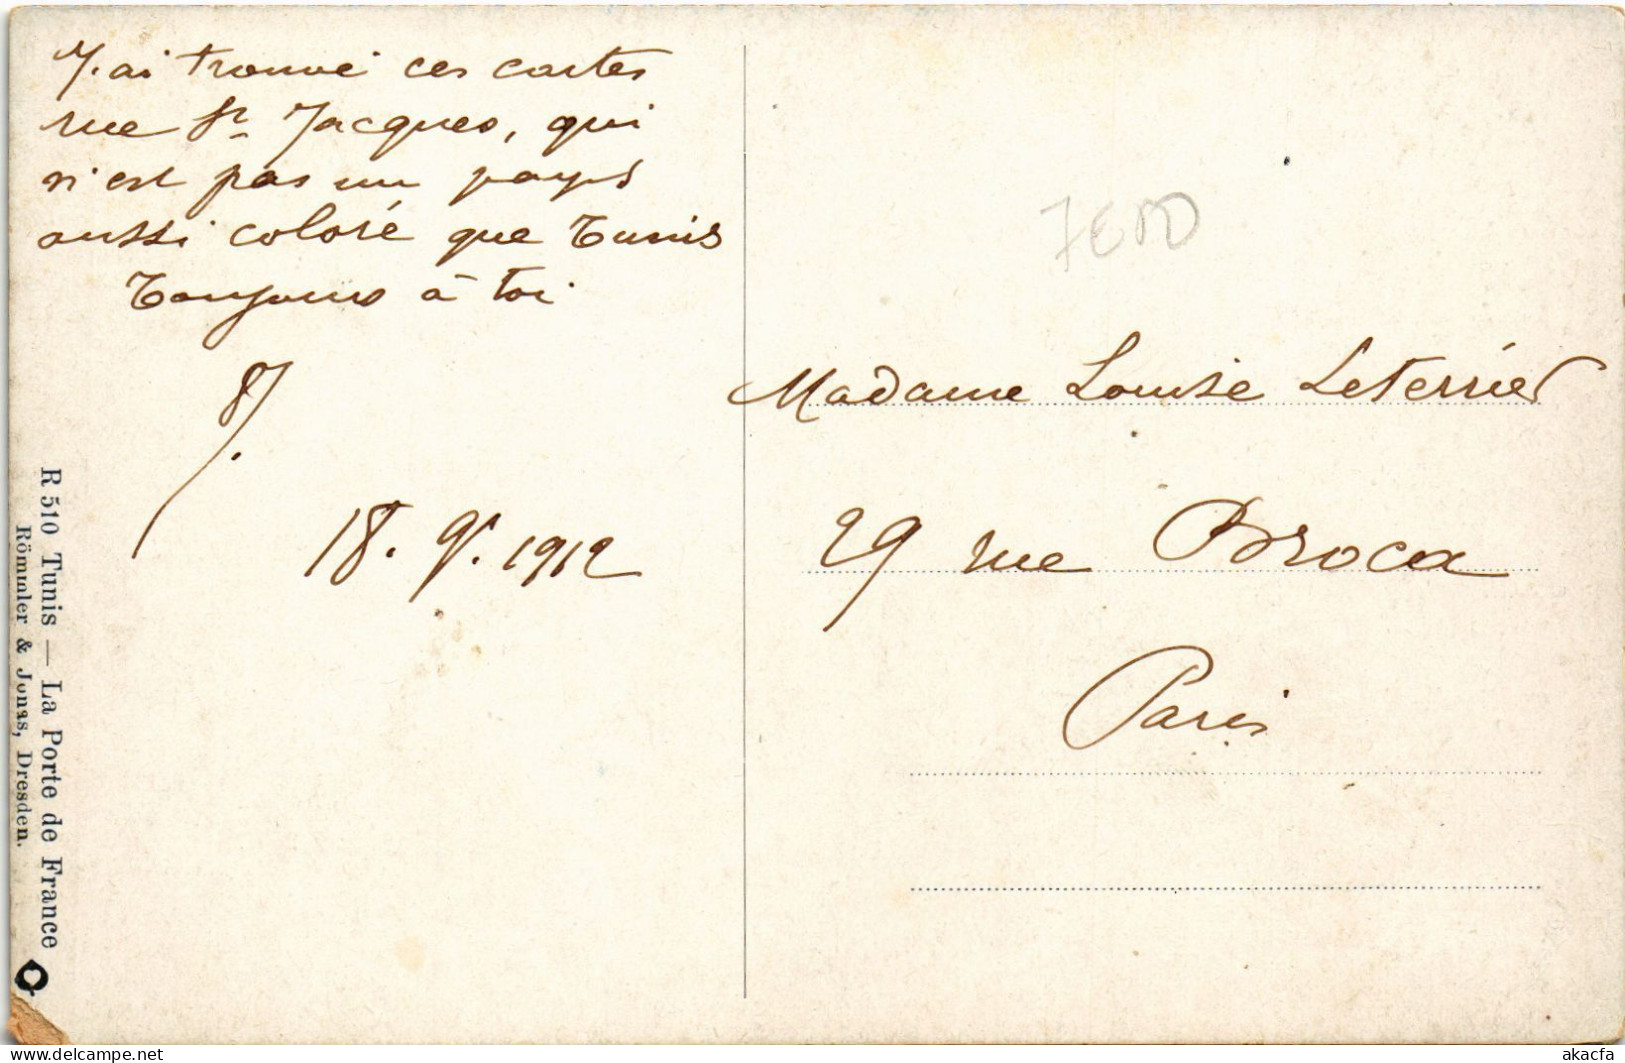 J'ai trouvé ces cartes
rue St Jacques, qui
n'est pas un pays
aussi coloré que Tunis
Toujours à toi
J.
18. 9. 1912
Madame Louise Leterrier
29 rue Broca
Paris
R 510 Tunis — La Porte de France
Römmler & Jonas, Dresden.
delcampe.net
akacfa